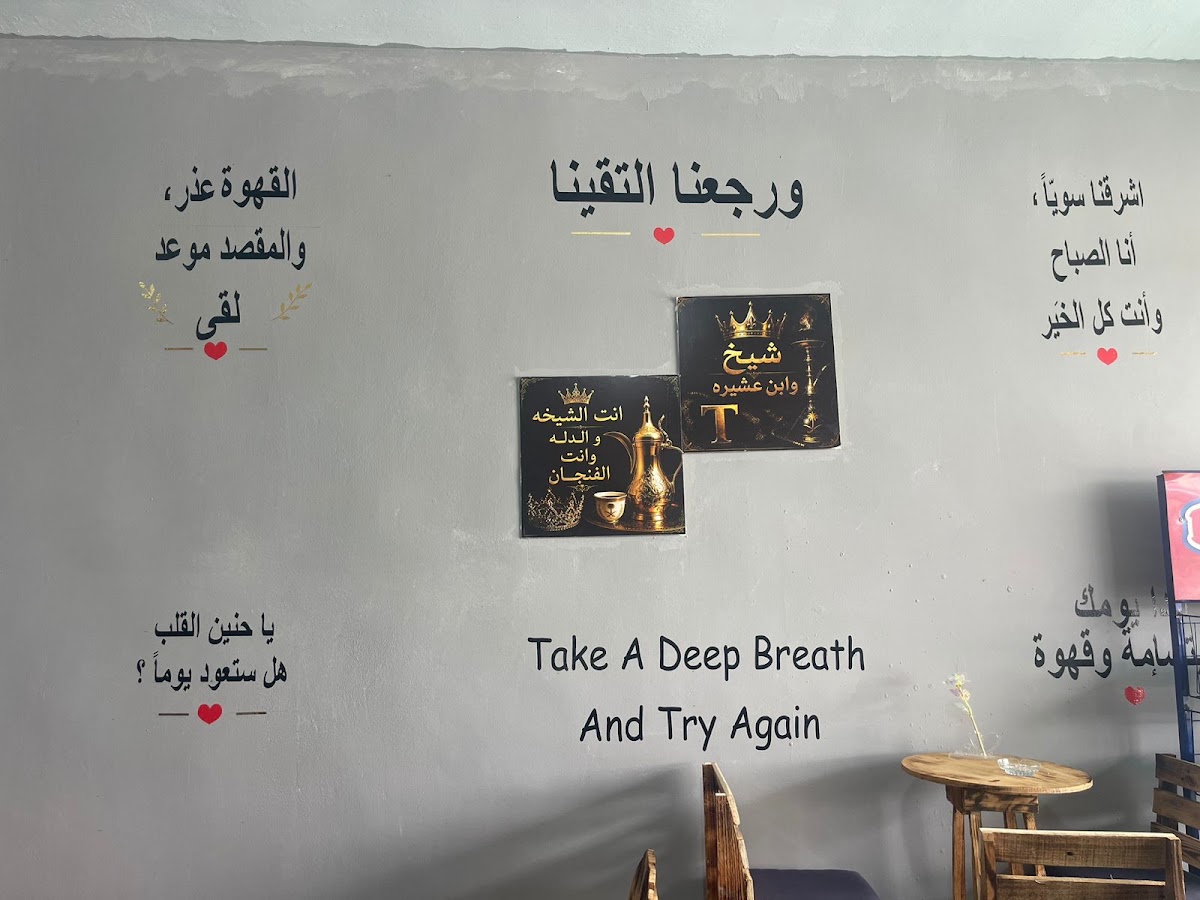 ورجعنا التقينا
اشرقنا سويّاً ،
أنا الصباح
وأنت كل الخَير
القهوة عذر ،
والمقصد موعد
لقى
شيخ
وابن عشيره
T
انت الشيخه
و الدله
وانت
الفنجان
يومك
وقهوة
Take A Deep Breath
And Try Again
يا حنين القلب
هل ستعود يوماً ؟